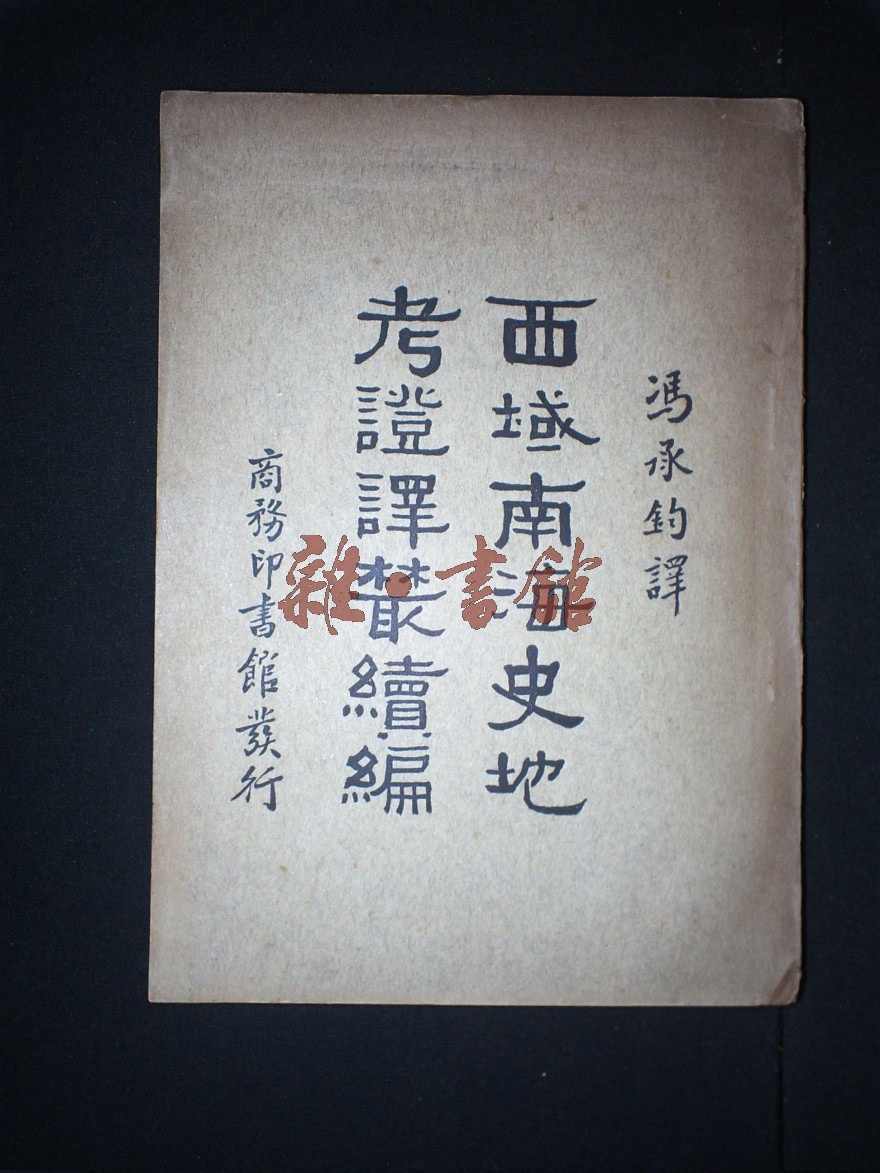 馮承鈞譯
西域南海史地
考證譯叢續編
商務印書館發行
雜·書館